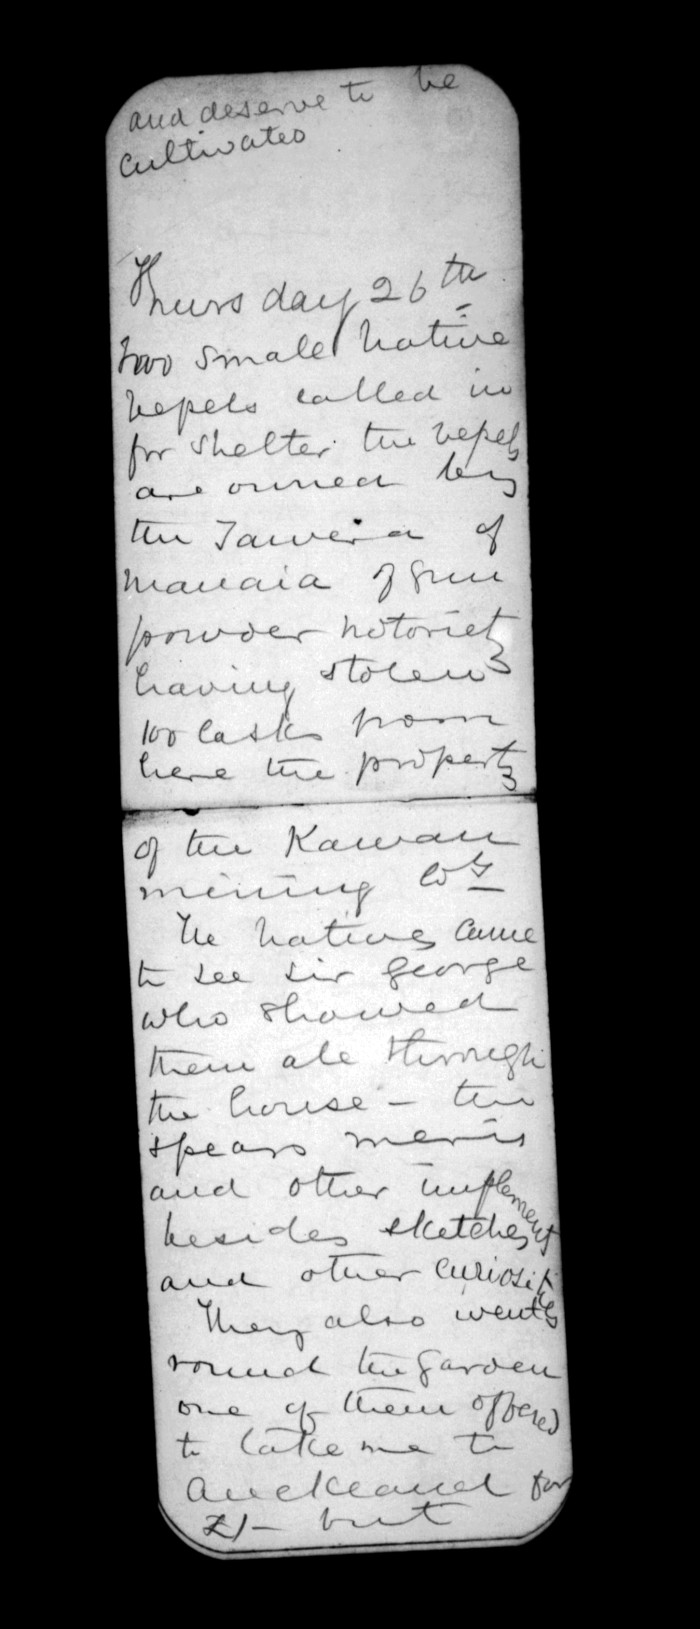 and deserve to be
cultivated
Thursday 26th
two small native
vessels called in
for shelter the vessels
are owned by
the Tawera of
Manaia of Gun
powder notoriety
having stolen
100 casks from
here the property
of the Kawau
mining Coy
The natives came
to see Sir George
who showed
them all through
the house - the
spears meris
and other implements
besides sketches
and other curiosities
They also went
round the garden
one of them offered
to take me to
Auckland for
£1- but